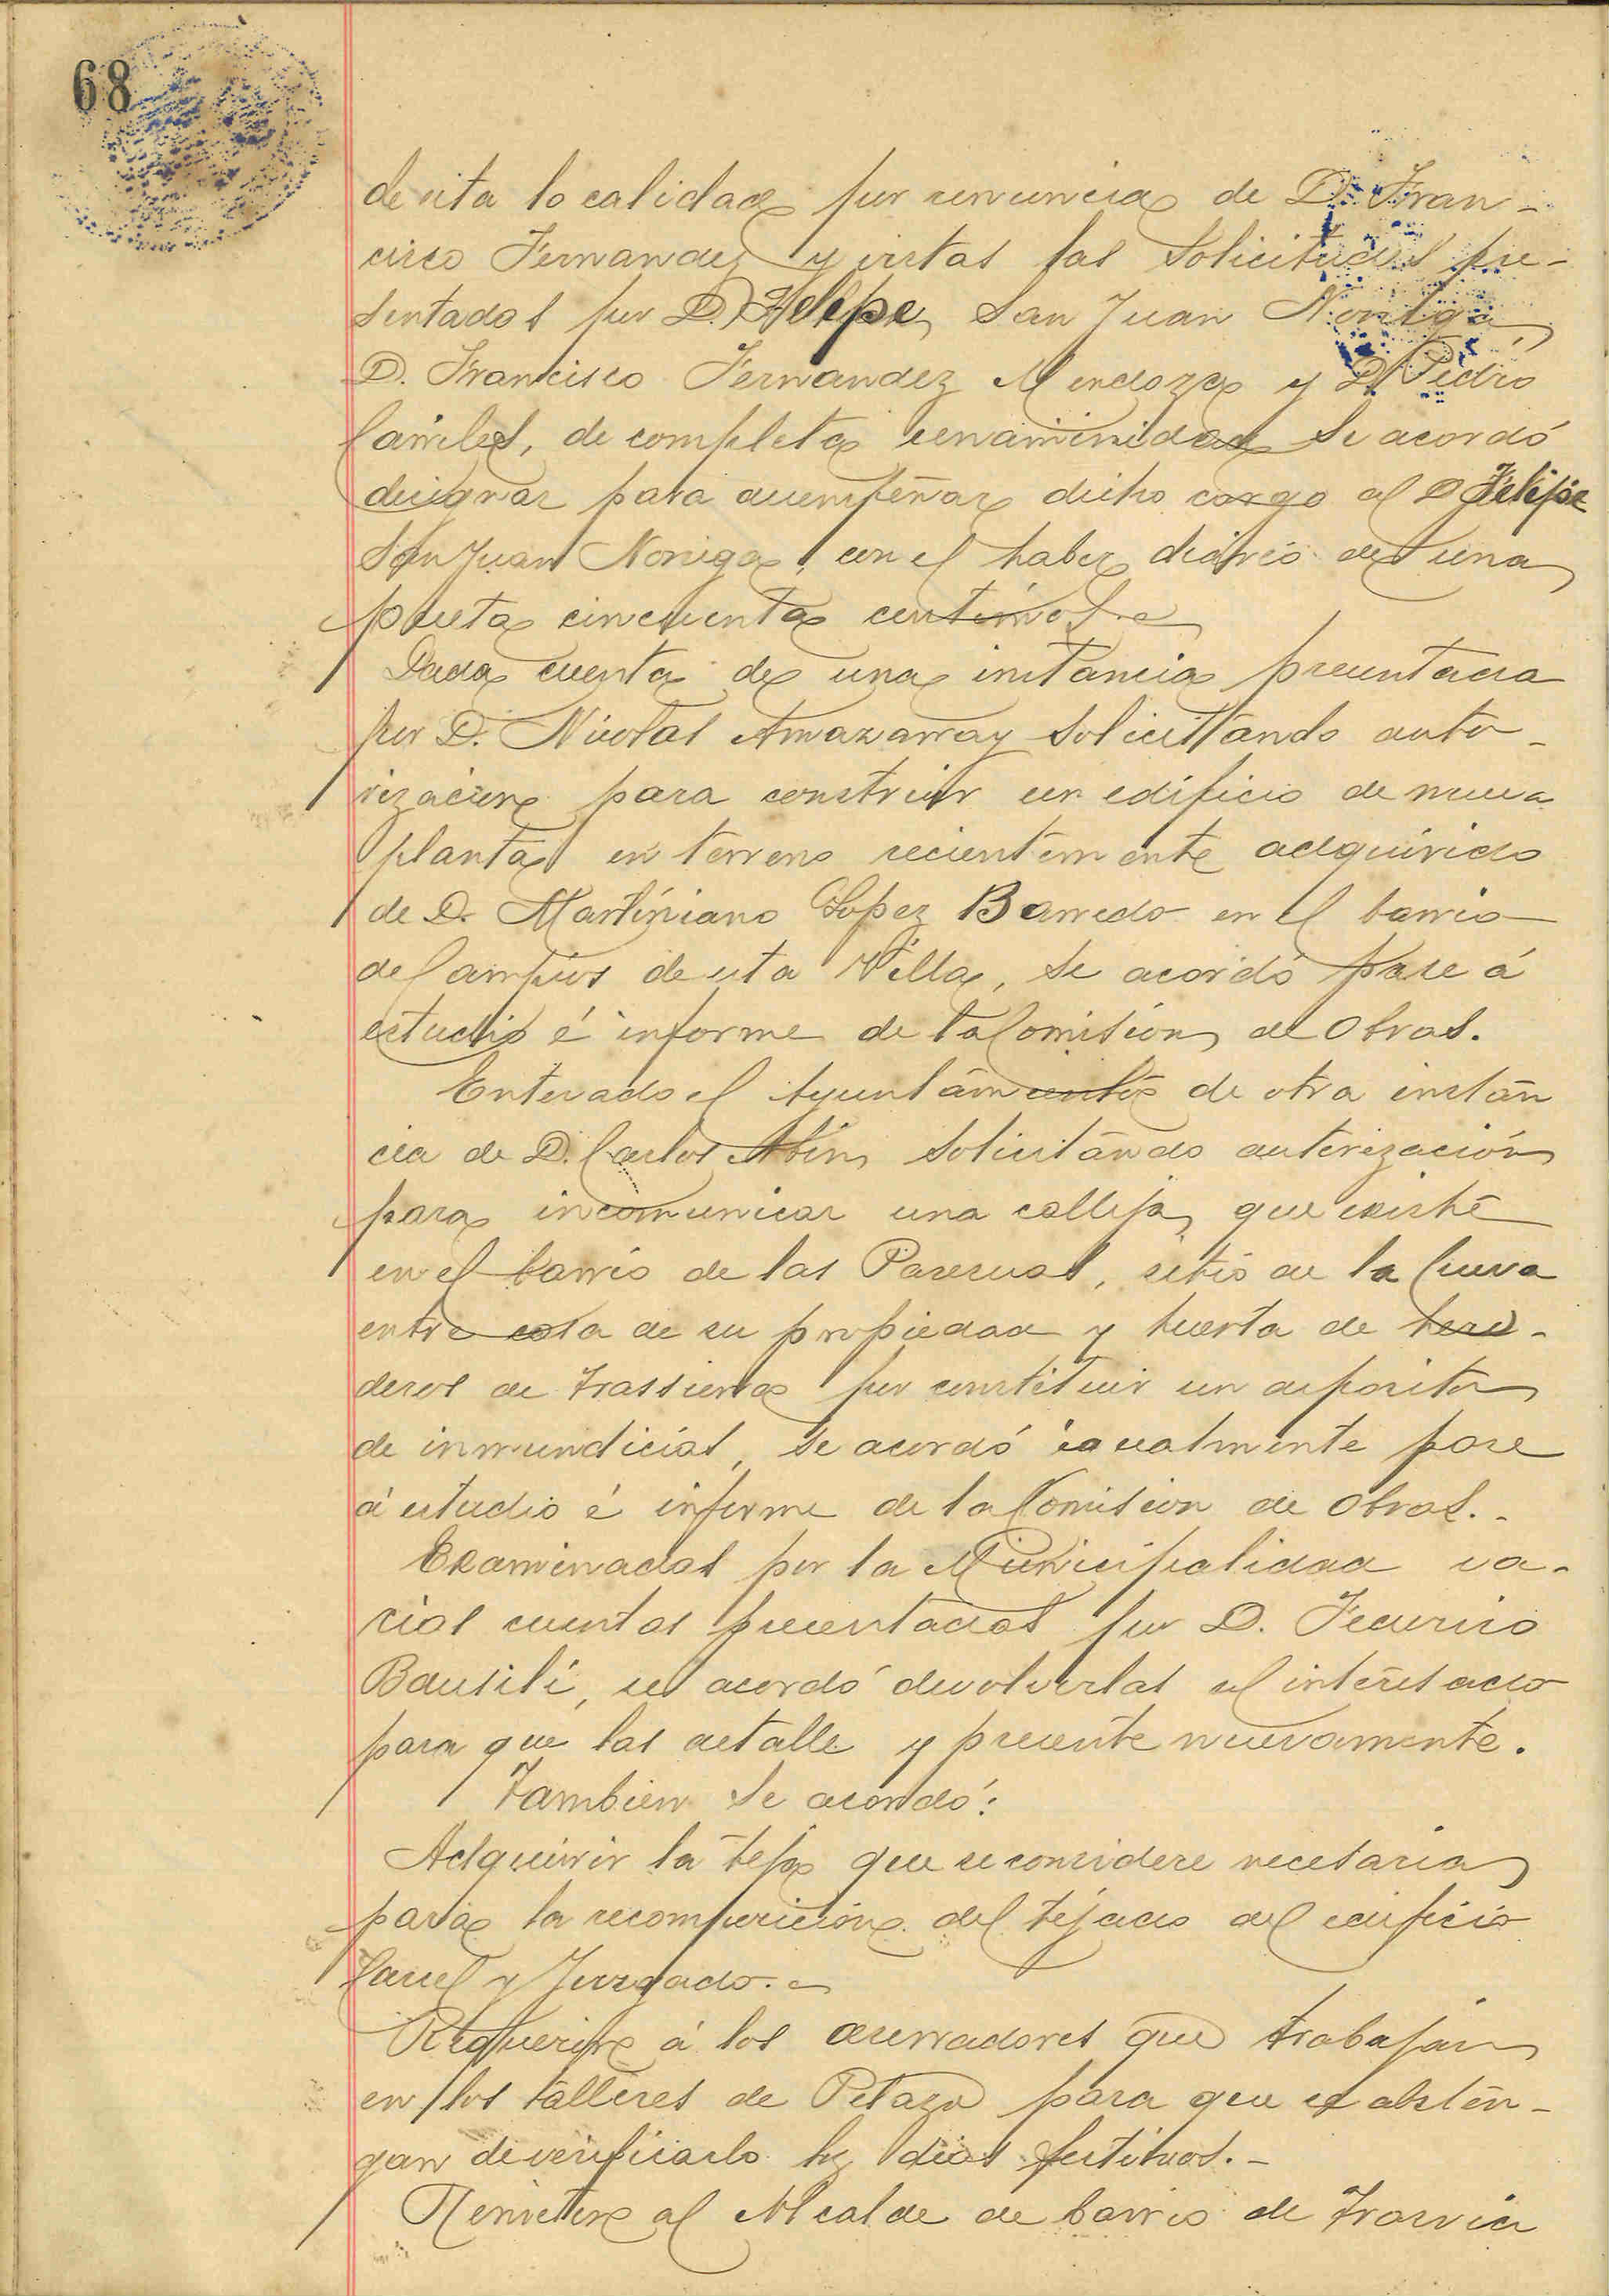 68
de esta localidad por renuncia de D. Fran-
cisco Fernandez y vistas las Solicitudes pre-
sentados por D. Felipe San Juan Noriega,
D. Francisco Fernandez Mendoza y D. Pedro
de completa unanimidad se acordó
designar para desempeñar dicho cargo al D Felipe
San Juan Noriega, con el haber diario de una
peseta cincuenta centimos.
Dada cuenta de una instancia presentada
por D. Nicolas Amazarray solicitando auto-
rizacion para construir un edificio de nueva
planta en terreno recientemente adquirido
de D. Martiniano Lopez Barredo en el barrio
de Campios de esta Villa, se acordó pase á
estudio é informe de la Comision de Obras.
Enterado el Ayuntamiento de otra instan
cia de D. Carlos solicitando autorización
para incomunicar una calleja que existe
en el barrio de las sitio de la Cueva
entre casa de su propiedad y huerta de here-
deros de Trassierra por constituir un deposito
de inmundicias, se acordó igualmente pase
á estudio é informe de la Comision de Obras.-
Examinadas por la Municipalidad va-
rias cuentas presentadas por D. Federico
se acordó devolverlas al interesado
para que las detalle y presente nuevamente.
Tambien se acordó:
Adquirir la teja que se considere necesaria
para la recomposición del tejado del edificio
Carcel y Juzgado.
Requerir á los aserradores que trabajan
en los talleres de para que se absten-
gan de verificarlo los dias festivos.-
Remitir al Alcalde de barrio de Trasvia